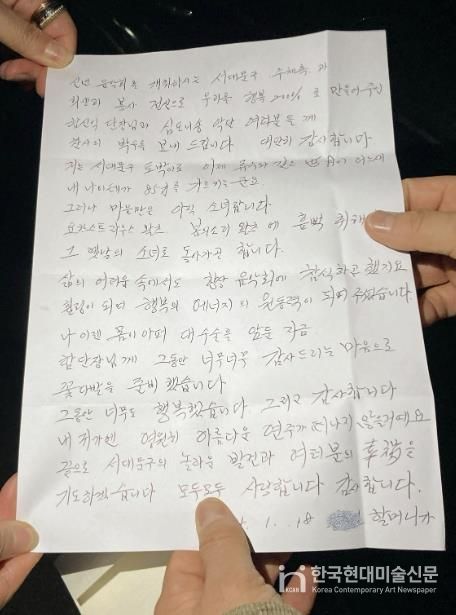 신년 음악회를 개최하시는 서대문구 주최측과
최선의 봉사 정신으로 우리를 행복 200% 로 만들어주신
함신익 단장님과 심포니송 악단 여러분들께
감사의 박수를 보내 드립니다 대단히 감사합니다
저는 서대문구 토박이로 이제 유수와 같은 어느새
내 나이테가 를 가르키는군요.
그러나 마음만은 아직 소녀랍니다
요한스트라우스 왈츠 봄의소리 왈츠 에 흠뻑 취해
그 옛날의 소녀로 돌아가곤 합니다.
삶의 어려움 속에서도 항상 음악회에 참석하곤 했기요
힐링이 되며 행복의 에너지의 원동력이 되며 주었습니다.
나 이젠 몸이 아퍼 대수술을 앞둔 지금
함단장님께 그동안 너무너무 감사드리는 마음으로
꽃다발을 준비했습니다
그동안 너무도 행복했습니다 그리고 감사합니다
내 귀가엔 영원히 아름다운 연주가 떠나지 않을거예요
끝으로 서대문구의 놀라운 발전과 여러분의 幸福을
기도하겠습니다 모두모두 사랑합니다 감사합니다.
1. 18 할머니가
한국현대미술신문
KCAN Korea Contemporary Art Newspaper